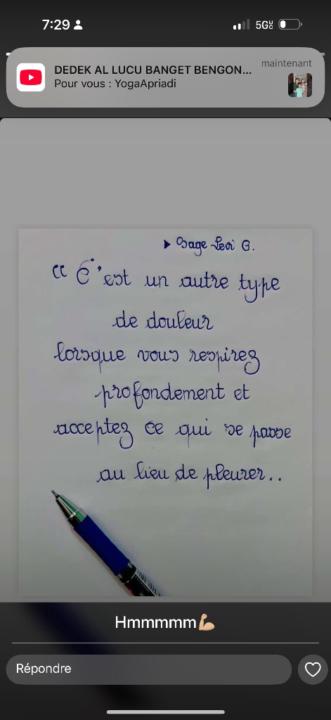 7:29
5G
DEDEK AL LUCU BANGET BENGON...
maintenant
Pour vous : YogaApriadi
Sage Levi G.
“ C'est un autre type
de douleur
lorsque vous respirez
profondement et
acceptez ce qui se passe
au lieu de pleurer..
Hmmmmm💪🏼
Répondre